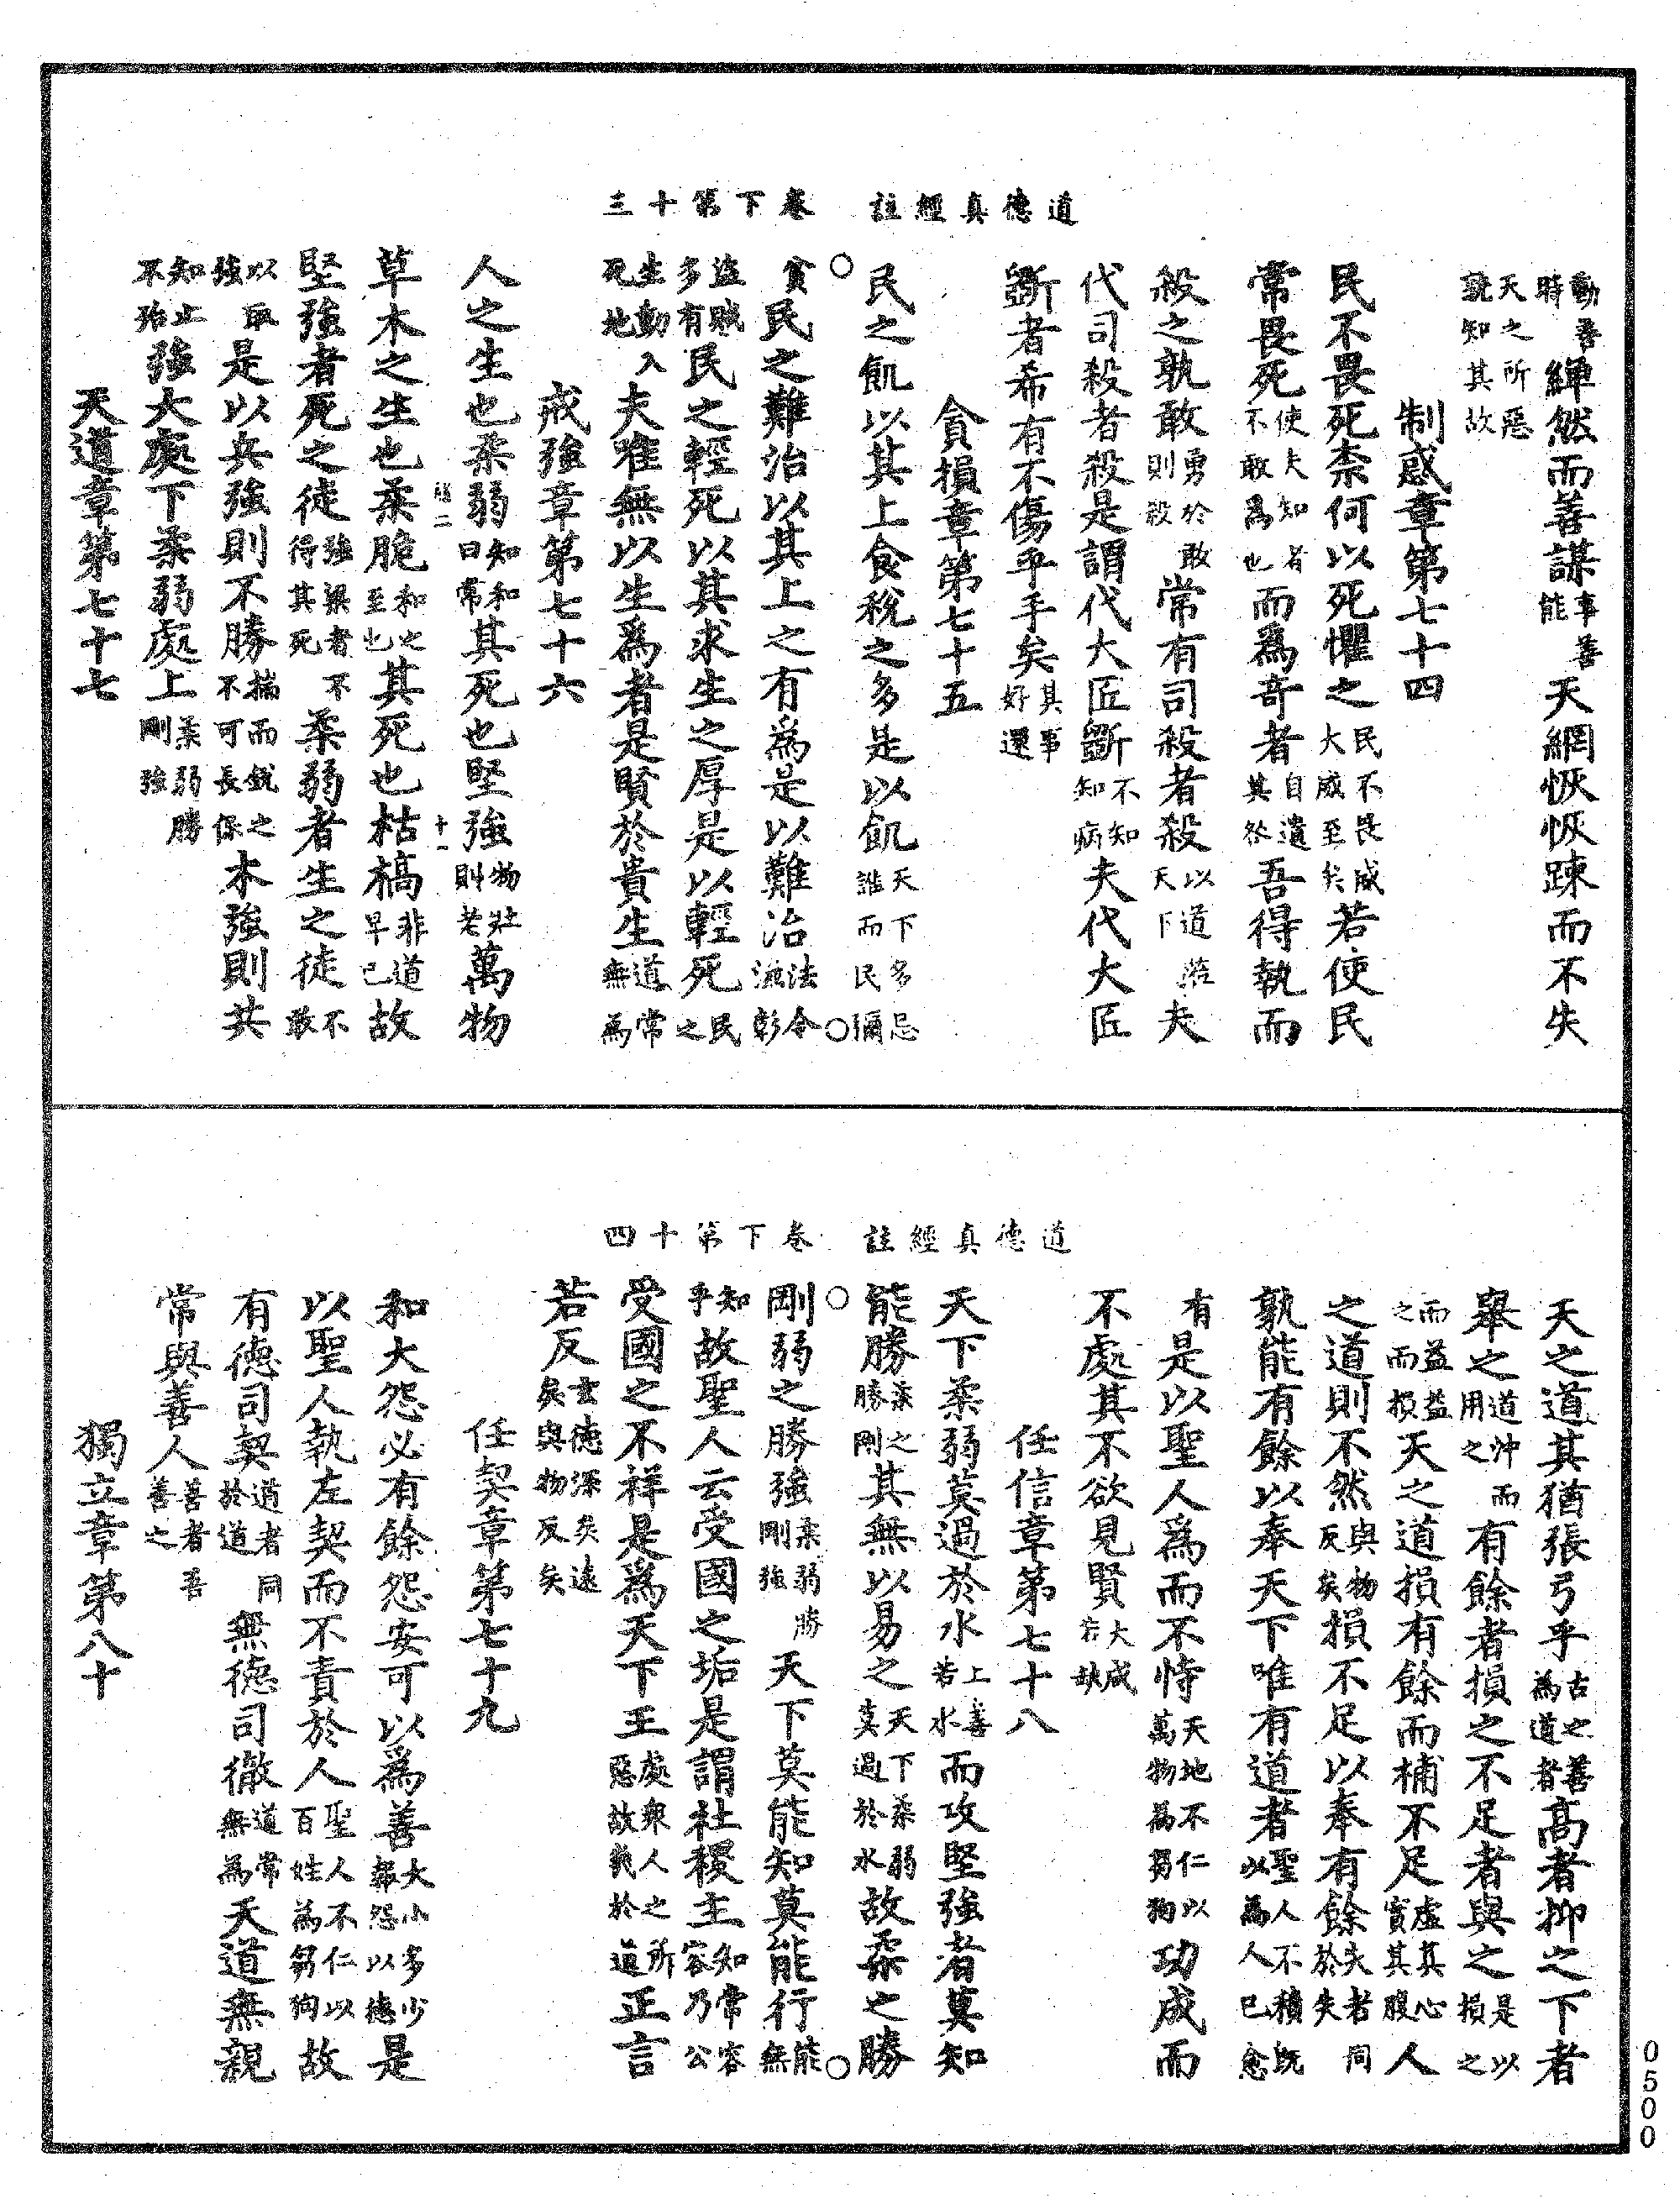 道德真經註　卷下第十三
動善時繟然而善謀事善能天網恢恢踈而不失
天之所惡孰知其故
制惑章第七十四
民不畏死柰何以死懼之民不畏威大威至矣若使民
常畏死使夫知者不敢為也而為奇者自遺其咎吾得執而
殺之孰敢勇於敢則殺常有司殺者殺以道莅天下夫
代司殺者殺是謂代大匠斲不知知病夫代大匠
斲者希有不傷乎手矣其事好還
貪損章第七十五
民之飢以其上食稅之多是以飢天下多忌諱而民彌
貧民之難治以其上之有為是以難治法令滋彰
盜賊多有民之輕死以其求生之厚是以輕死民之
生動入死地夫唯無以生為者是賢於貴生道常無為
戒強章第七十六
人之生也柔弱知和曰常其死也堅強物壯則老萬物
二　十一
草木之生也柔脆和之至也其死也枯槁非道早已故
堅強者死之徒強梁者不得其死柔弱者生之徒不敢
以取強是以兵強則不勝揣而銳之不可長保木強則共
知止不殆強大處下柔弱處上柔弱勝剛強
天道章第七十七
道德真經註　卷下第十四
天之道其猶張弓乎古之善為道者高者抑之下者
舉之道沖而用之有餘者損之不足者與之是以損之
而益益之而損天之道損有餘而補不足虛其心實其腹人
之道則不然與物反矣損不足以奉有餘失者同於失
孰能有餘以奉天下唯有道者聖人不積既以為人己愈
有是以聖人為而不恃天地不仁以萬物為芻狗功成而
不處其不欲見賢大成若缺
任信章第七十八
天下柔弱莫過於水上善若水而攻堅強者莫知
能勝柔之勝剛其無以易之天下柔弱莫過於水故柔之勝
剛弱之勝強柔弱勝剛強天下莫能知莫能行能無
知乎故聖人云受國之垢是謂社稷主知常容容乃公
受國之不祥是為天下王處衆人之所惡故幾於道正言
若反玄德深矣遠矣與物反矣
任契章第七十九
和大怨必有餘怨安可以為善大小多少報怨以德是
以聖人執左契而不責於人聖人不仁以百姓為芻狗故
有德司契道者同於道無德司徹道常無為天道無親
常與善人善者吾善之
獨立章第八十
0500